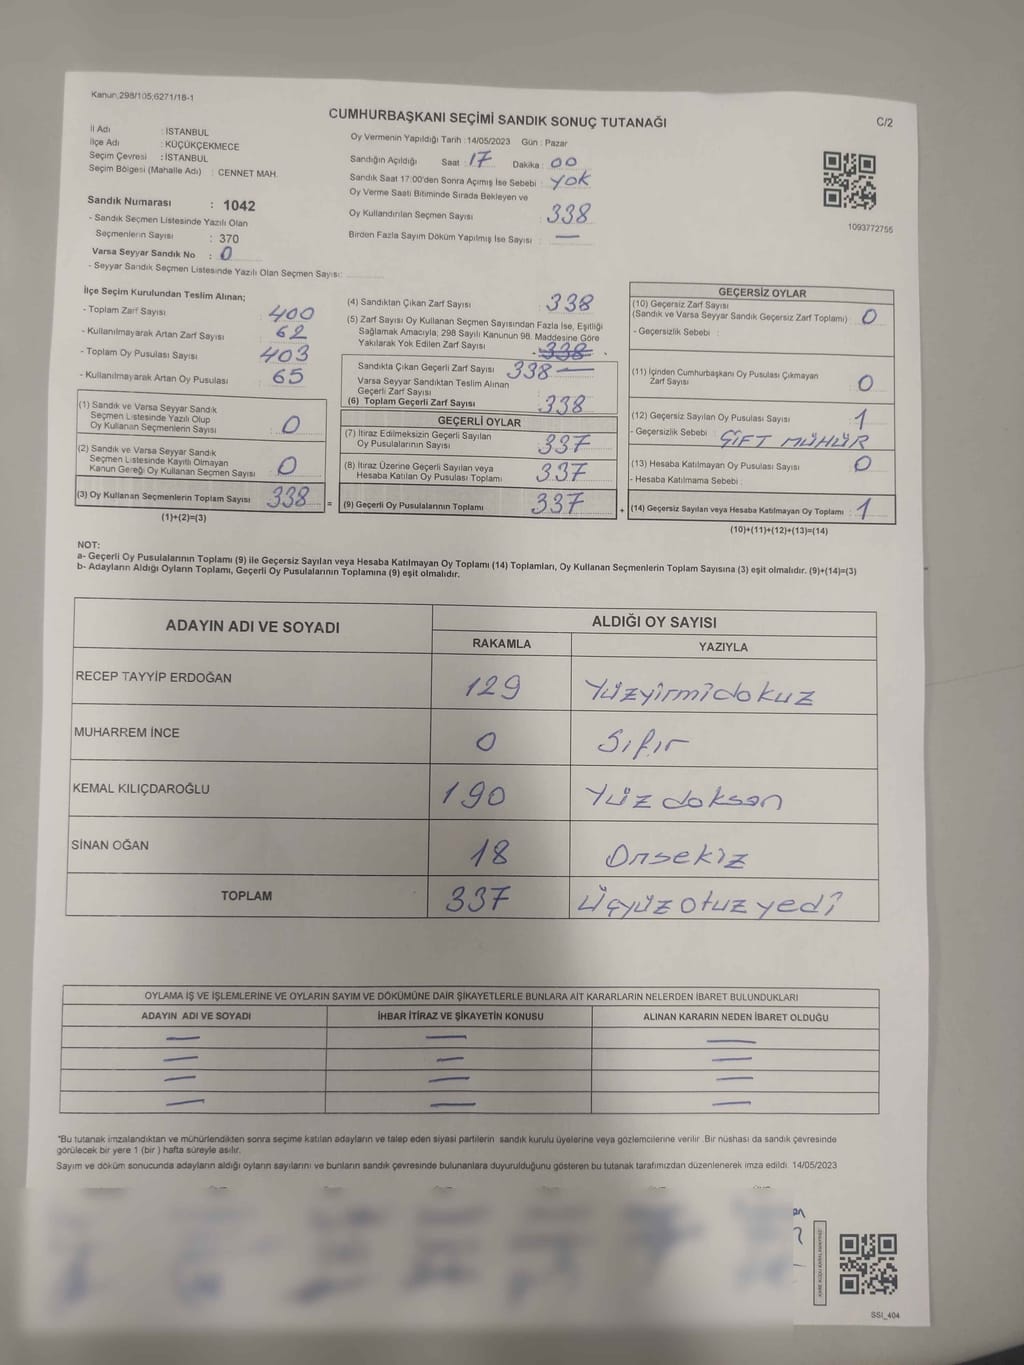 Kanun;298/105;6271/18-1
CUMHURBAŞKANI SEÇİMİ SANDIK SONUÇ TUTANAĞI
C/2
İl Adı : İSTANBUL
İlçe Adı : KÜÇÜKÇEKMECE
Seçim Çevresi : İSTANBUL
Seçim Bölgesi (Mahalle Adı) : CENNET MAH.
Sandık Numarası : 1042
- Sandık Seçmen Listesinde Yazılı Olan
Seçmenlerin Sayısı : 370
Varsa Seyyar Sandık No : 0
- Seyyar Sandık Seçmen Listesinde Yazılı Olan Seçmen Sayısı:
Oy Vermenin Yapıldığı Tarih :14/05/2023 Gün : Pazar
Sandığın Açıldığı Saat : 17 Dakika : 00
Sandık Saat 17:00'den Sonra Açımış İse Sebebi : YOK
Oy Verme Saati Bitiminde Sırada Bekleyen ve
Oy Kullandırılan Seçmen Sayısı : 338
Birden Fazla Sayım Döküm Yapılmış İse Sayısı : —
1093772755
İlçe Seçim Kurulundan Teslim Alınan;
- Toplam Zarf Sayısı : 400
- Kullanılmayarak Artan Zarf Sayısı : 62
- Toplam Oy Pusulası Sayısı : 403
- Kullanılmayarak Artan Oy Pusulası : 65
(1) Sandık ve Varsa Seyyar Sandık
Seçmen Listesinde Yazılı Olup
Oy Kullanan Seçmenlerin Sayısı : 0
(2) Sandık ve Varsa Seyyar Sandık
Seçmen Listesinde Kayıtlı Olmayan
Kanun Gereği Oy Kullanan Seçmen Sayısı : 0
(3) Oy Kullanan Seçmenlerin Toplam Sayısı : 338 =
(1)+(2)=(3)
(4) Sandıktan Çıkan Zarf Sayısı : 338
(5) Zarf Sayısı Oy Kullanan Seçmen Sayısından Fazla İse, Eşitliği
Sağlamak Amacıyla; 298 Sayılı Kanunun 98. Maddesine Göre
Yakılarak Yok Edilen Zarf Sayısı : 338
Sandıkta Çıkan Geçerli Zarf Sayısı : 338 —
Varsa Seyyar Sandıktan Teslim Alınan
Geçerli Zarf Sayısı
(6) Toplam Geçerli Zarf Sayısı : 338
GEÇERLİ OYLAR
(7) İtiraz Edilmeksizin Geçerli Sayılan
Oy Pusulalarının Sayısı : 337
(8) İtiraz Üzerine Geçerli Sayılan veya
Hesaba Katılan Oy Pusulası Toplamı : 337
(9) Geçerli Oy Pusulalarının Toplamı : 337 +
GEÇERSİZ OYLAR
(10) Geçersiz Zarf Sayısı
(Sandık ve Varsa Seyyar Sandık Geçersiz Zarf Toplamı) : 0
- Geçersizlik Sebebi :
(11) İçinden Cumhurbaşkanı Oy Pusulası Çıkmayan
Zarf Sayısı : 0
(12) Geçersiz Sayılan Oy Pusulası Sayısı : 1
- Geçersizlik Sebebi : ÇİFT MÜHÜR
(13) Hesaba Katılmayan Oy Pusulası Sayısı : 0
- Hesaba Katılmama Sebebi :
(14) Geçersiz Sayılan veya Hesaba Katılmayan Oy Toplamı : 1
(10)+(11)+(12)+(13)=(14)
NOT:
a- Geçerli Oy Pusulalarının Toplamı (9) ile Geçersiz Sayılan veya Hesaba Katılmayan Oy Toplamı (14) Toplamları, Oy Kullanan Seçmenlerin Toplam Sayısına (3) eşit olmalıdır. (9)+(14)=(3)
b- Adayların Aldığı Oyların Toplamı, Geçerli Oy Pusulalarının Toplamına (9) eşit olmalıdır.
ADAYIN ADI VE SOYADI
ALDIĞI OY SAYISI
RAKAMLA YAZIYLA
RECEP TAYYİP ERDOĞAN 129 Yüzyirmidokuz
MUHARREM İNCE 0 Sıfır
KEMAL KILIÇDAROĞLU 190 Yüz doksan
SİNAN OĞAN 18 Onsekiz
TOPLAM 337 Üçyüz otuz yedi
OYLAMA İŞ VE İŞLEMLERİNE VE OYLARIN SAYIM VE DÖKÜMÜNE DAİR ŞİKAYETLERLE BUNLARA AİT KARARLARIN NELERDEN İBARET BULUNDUKLARI
ADAYIN ADI VE SOYADI İHBAR İTİRAZ VE ŞİKAYETİN KONUSU ALINAN KARARIN NEDEN İBARET OLDUĞU
— — —
— — —
— — —
— — —
"Bu tutanak imzalandıktan ve mühürlendikten sonra seçime katılan adayların ve talep eden siyasi partilerin sandık kurulu üyelerine veya gözlemcilerine verilir. Bir nüshası da sandık çevresinde
görülecek bir yere 1 (bir ) hafta süreyle asılır.
Sayım ve döküm sonucunda adayların aldığı oyların sayılarını ve bunların sandık çevresinde bulunanlara duyurulduğunu gösteren bu tutanak tarafımızdan düzenlenerek imza edildi. 14/05/2023
SSI_404